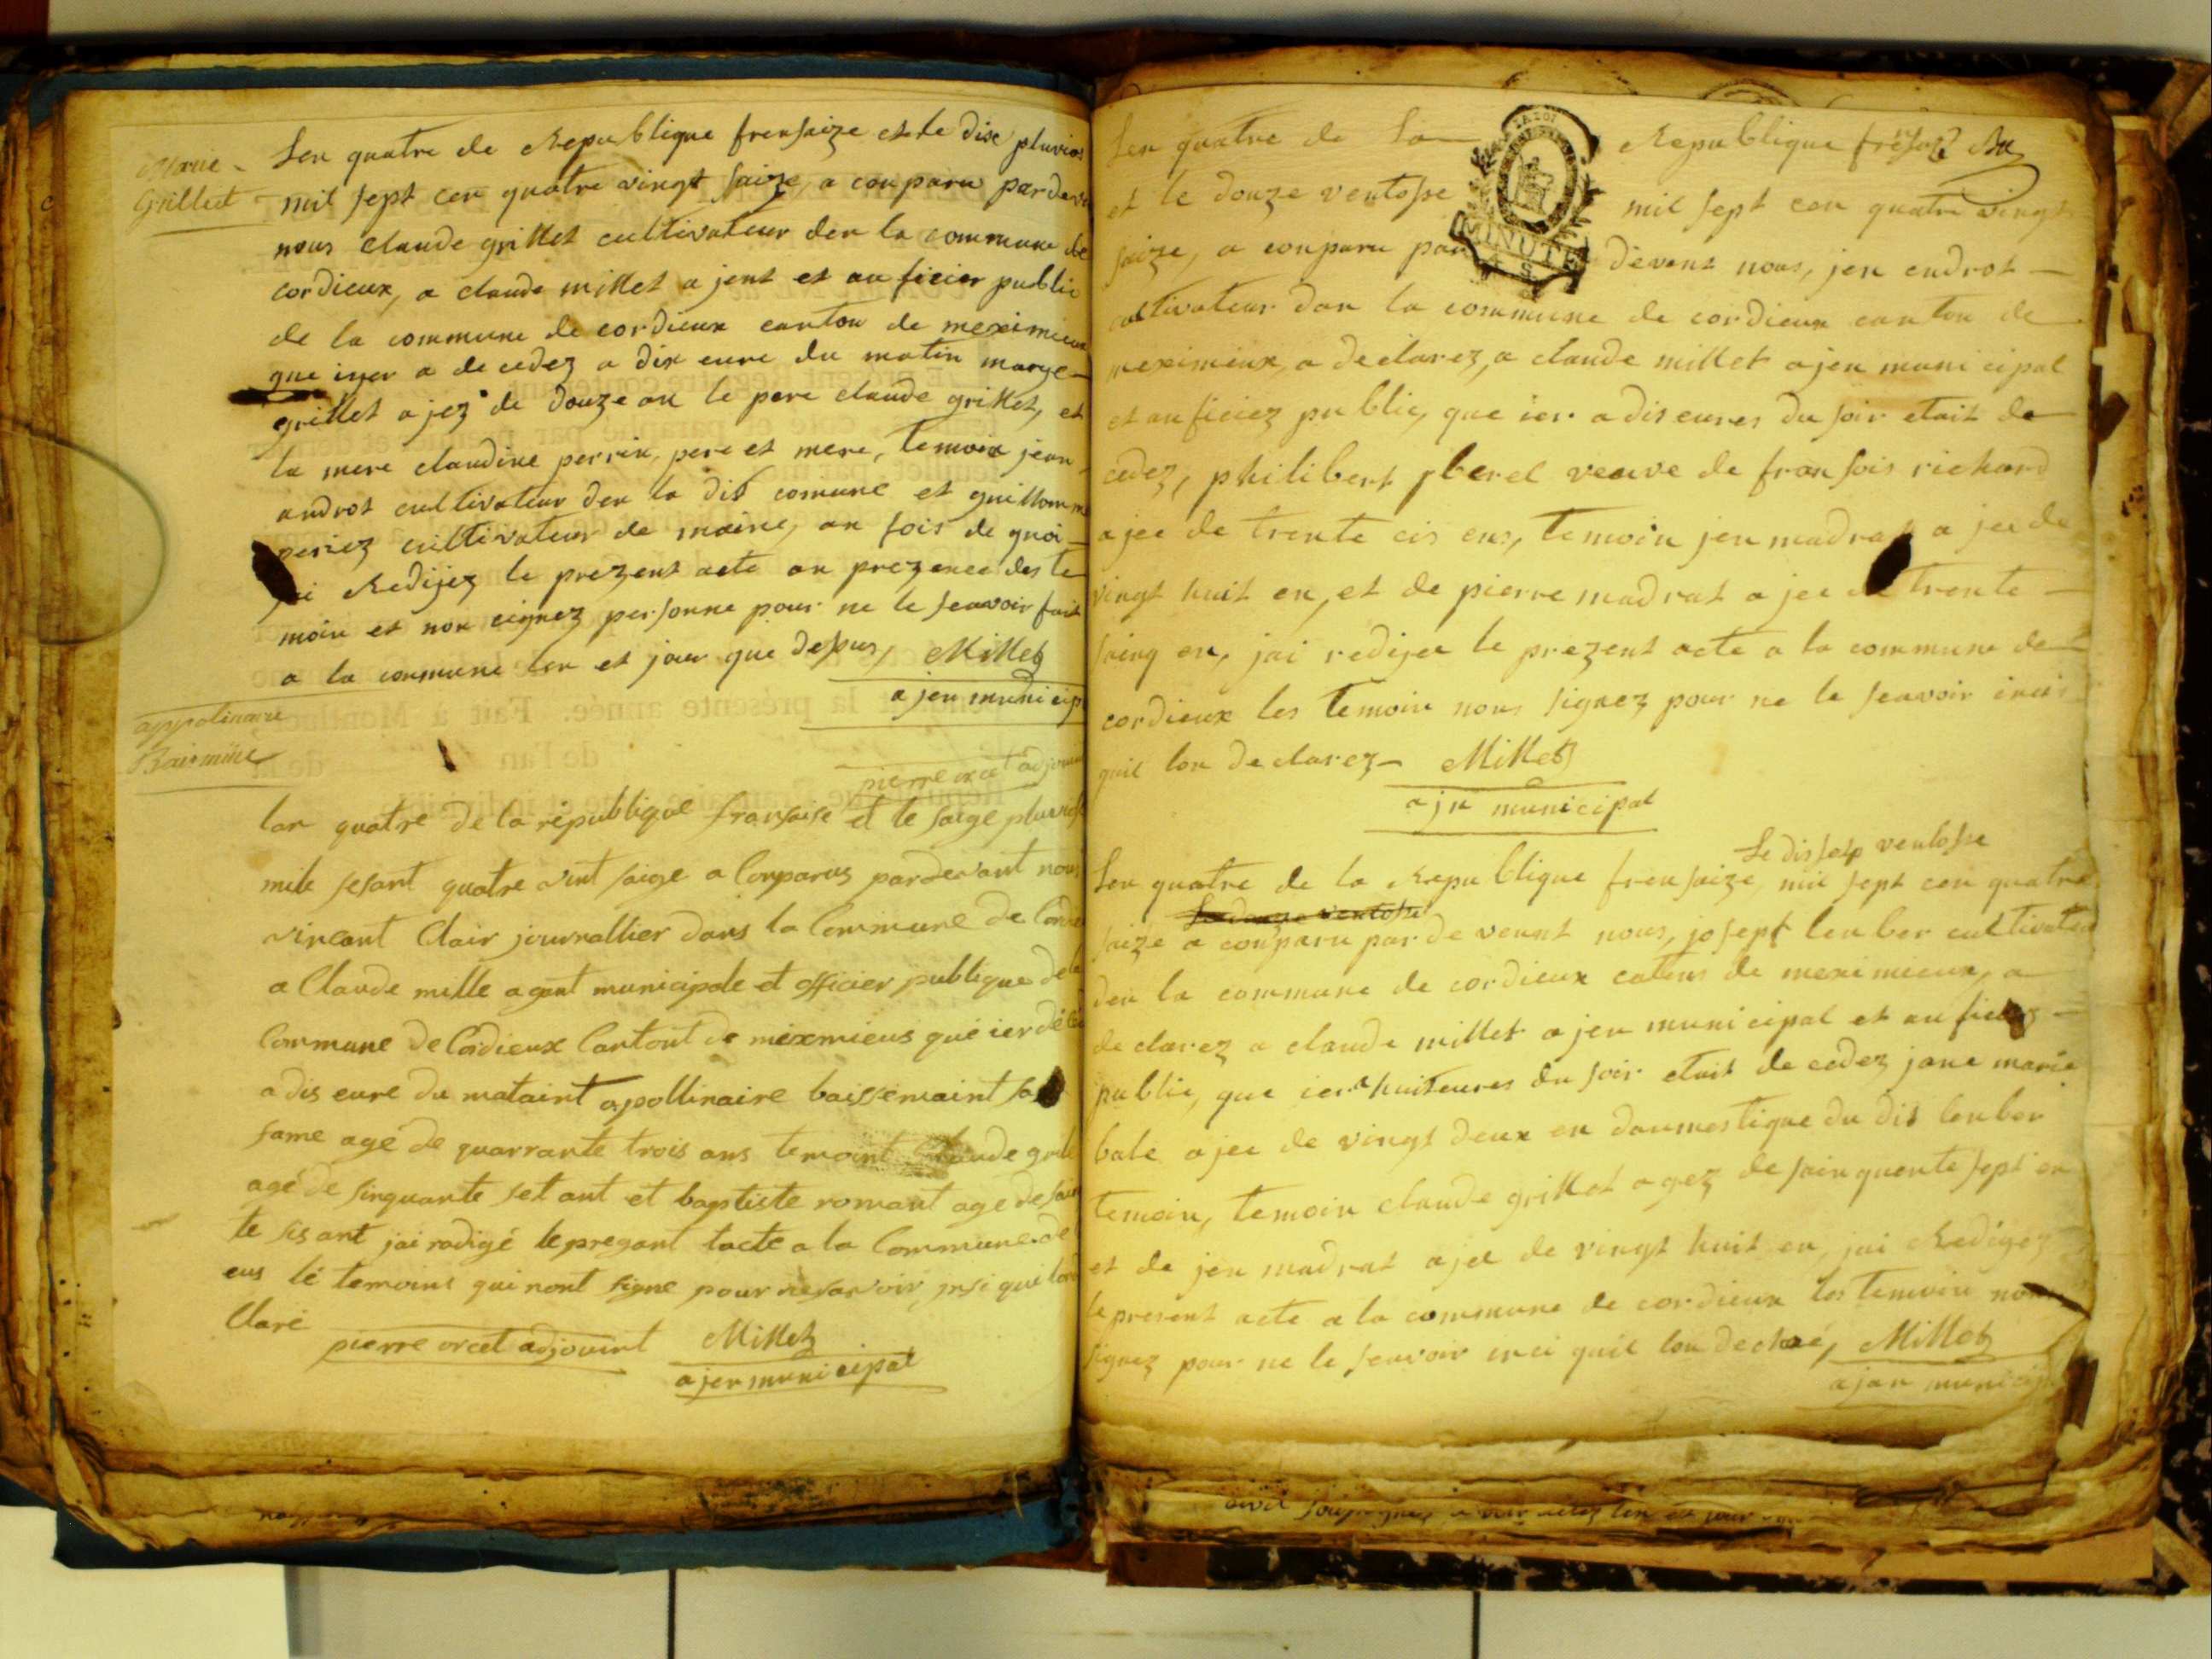 Marie
Grillet
Len quatre de Republique frensaize et le dixe pluvios
mil sept cen quatre vingt saize, a conparu par deva
nous claude grillet cultivateur den la commune de
cordieux, a claude millet a jent et au ficier public
de la commune de cordieux canton de meximieux
que iyer a de cedez a dix eure du matin marye
grillet ajez de douze an le pere claude grillet, et
la mere claudine perrin, pere et mere, temoin jean
androt cultivateur den la dit comune et guillomme
periez cultivateur de maine, an fois de quoi
jai Redijez le prezent acte an prezence des te
moin et non cignez personne pour ne le seavoir fait
a la commune len et jour que depus, Millet
a jen municip
appolinaire
Baismine
pierre orcet adjouin
lan quatre de la républiqué fransaise et le saize pluvios
mile sesant quatre vint saize a Conparus pardevant nous
vincant Clair journallier dans la Commune de Cordi
a Claude mille agant municipale et officier publique de la
Commune de Cordieux Cantont de meximieus que ier déce
a dis eure du mataint apollinaire baissemaint sa
fame agé de quarrante trois ans temoint Claude grile
agé de sinquante set ant et baptiste romant age de soin
te sis ant jai radigé le prezant lacte a la Commune de
eus lé temoins qui nont signe pour ne savoir insi qui lon
Claré
pierre orcet adjouint Millet
a jen municipal
Len quatre de la Republique frensaize
et le douze ventosse mil sept cen quatre vingt
saize, a conparu par devent nous, jen endrot
cultivateur dan la commune de cordieux canton de
meximieux, a declarez, a claude millet ajen municipal
et au ficiez public, que ier a dis eures du soir etait de
cedez, philibert yberel veuve de fransois richard
ajee de trente cis ens, temoin jen madrat a jee de
vingt huit en, et de pierre madrat a jee de trente
saing en, jai redijee le prezent acte a la commune de
cordieux les temoin nous signez pour ne le seavoir inci
quil lon declarez Millet
ajn municipal
Le dissep ventosse
Len quatre de la Republique frensaize, mil sept cen quatre
Le douze ventosse
saize a conparu par de veunt nous, josept leuber cultivateu
den la commune de cordieux catons de meximieux, a
de clarez a claude millet a jen municipal et au ficiez
public, que ier a huit eures du soir etait de cedez jane marie
bale ajee de vingt deux en doumestique du dit leuber
temoin, temoin claude grillet agez de sainquente sept en
et de jen madrat ajee de vingt huit en, jai Redigez
le present acte a la commune de cordieux les temoin non
signez pour ne le seavoir inci quil lon declaré, Millet
ajan municip
civil